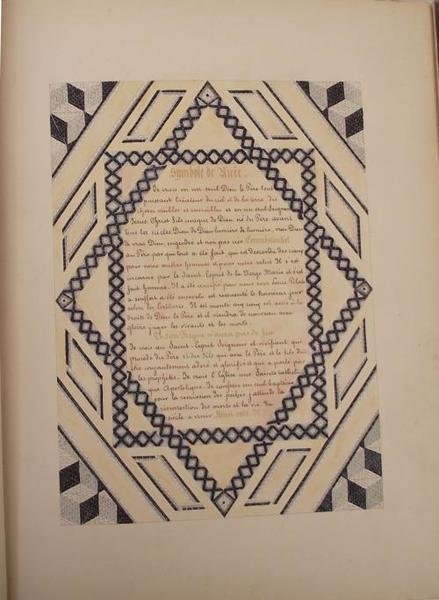 Symbole de Nicée
Je crois en un seul Dieu le Père tout
puissant Créateur du ciel et de la terre, des
choses visibles et invisibles et en un seul Seigneur
Jésus Christ Fils unique de Dieu né du Père avant
tous les siècles Dieu de Dieu lumière de lumière, vrai Dieu
de vrai Dieu, engendré et non pas créé Consubstantiel
au Père par qui tout a été fait, qui est descendu des cieux
pour nous autres hommes et pour notre salut Il s'est
incarné par le Saint Esprit de la Vierge Marie et s'est
fait homme. Il a été crucifié pour nous sous Ponce Pilate
a souffert a été enseveli et ressuscité le troisième jour
selon les Ecritures Il est monté aux cieux est assis à la
droite de Dieu le Père et il viendra de nouveau avec
gloire juger les vivants et les morts
et son Règne n'aura pas de fin
Je crois au Saint Esprit Seigneur et vivifiant qui
procède du Père et du Fils qui avec le Père et le fils doit
être conjointement adoré et glorifié et qui a parlé par
les prophètes. Je crois l'Eglise une Sainte catholique
que Apostolique. Je confesse un seul baptême
pour la rémission des péchés j'attends la
résurrection des morts et la vie du
siècle à venir. Ainsi soit-il